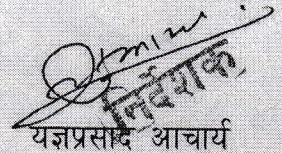 निर्देशक
यज्ञप्रसाद आचार्य